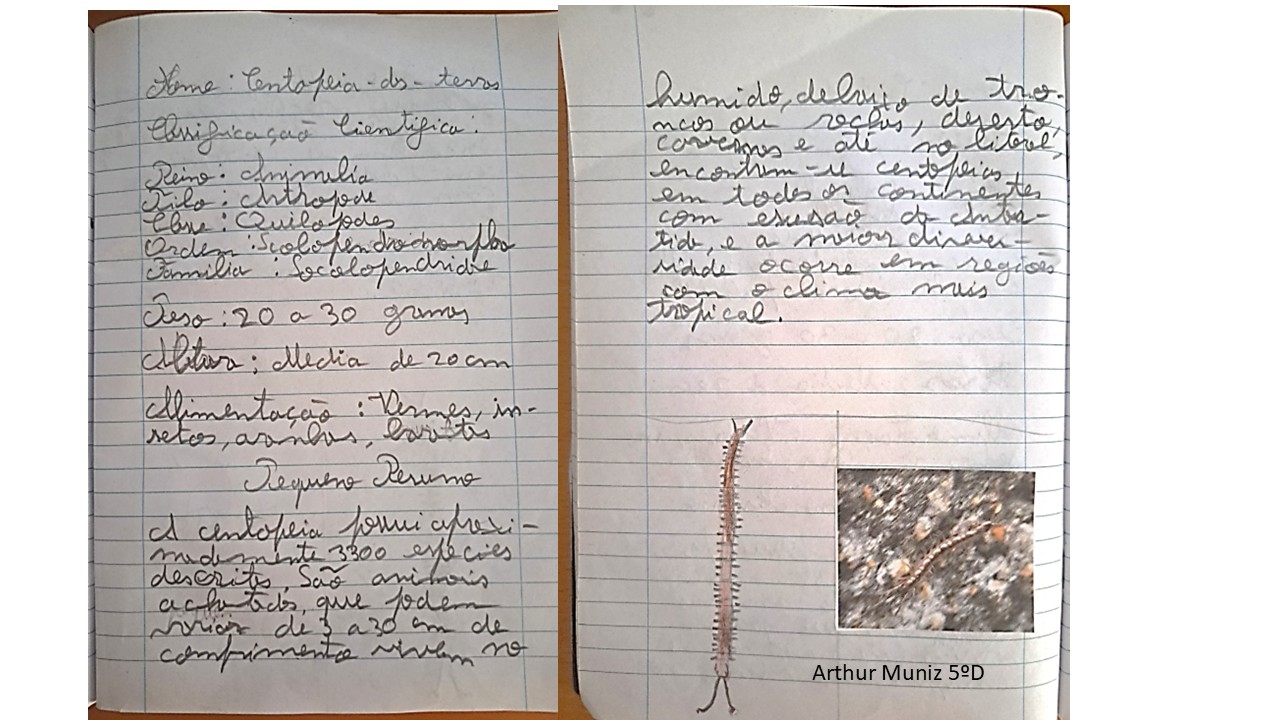 Nome: Centopeia-das-terras
Classificação Cientifica:
Reino: Animalia
Filo: Arthropode
Classe: Quilopodes
Ordem: Scolopendromorpha
Familia: Socolopendridie
Peso: 20 a 30 gramas
Altura: Media de 20 cm
Alimentação: Vermes, in-
setos, aranhas,
Pequeno Resumo
A centopeia possui aproxi-
madamente 3300 espécies
descritas. São animais
achatados, que podem
variar de 3 a 30 cm de
comprimento vivem no
humido, debaixo de tro-
ncos ou rochas, deserto,
cavernas e até no litoral,
encontram-se centopeias
em todos os continentes
com exusaõ da Anta-
tida, e a maior diver-
sidade ocorre em regiões
com o clima mais
tropical.
Arthur Muniz 5ºD